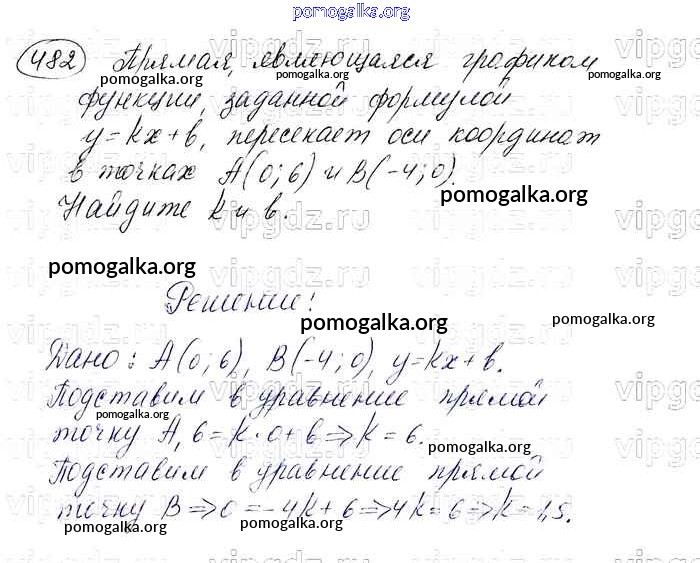 pomogalka.org
482 Прямая, являющаяся графиком
pomogalka.org pomogalka.org
функции, заданной формулой
pomogalka.org pomogalka.org
y=kx+b, пересекает оси координат
в точках A(0;6) и B(-4;0).
pomogalka.org
Найдите k и b.
pomogalka.org
Решение:
pomogalka.org pomogalka.org
Дано: A(0;6), B(-4;0), y=kx+b.
Подставим в уравнение прямой
pomogalka.org
точку A, 6=k·0+b⇒k=6.
pomogalka.org
Подставим в уравнение прямой
точку B⇒0=-4k+6⇒4k=6⇒k=1,5.
pomogalka.org pomogalka.org pomogalka.org
vipgdz.ru vipgdz.ru vipgdz.ru